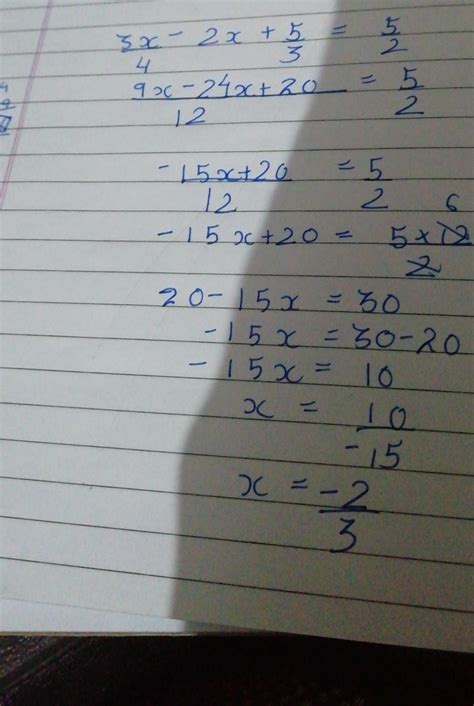 3x/4 - 2x + 5/3 = 5/2
9x-24x+20/12 = 5/2
-15x+20/12 = 5/2
-15x+20 = 5×12/2 6
20-15x = 30
-15x = 30-20
-15x = 10
x = 10/-15
x = -2/3